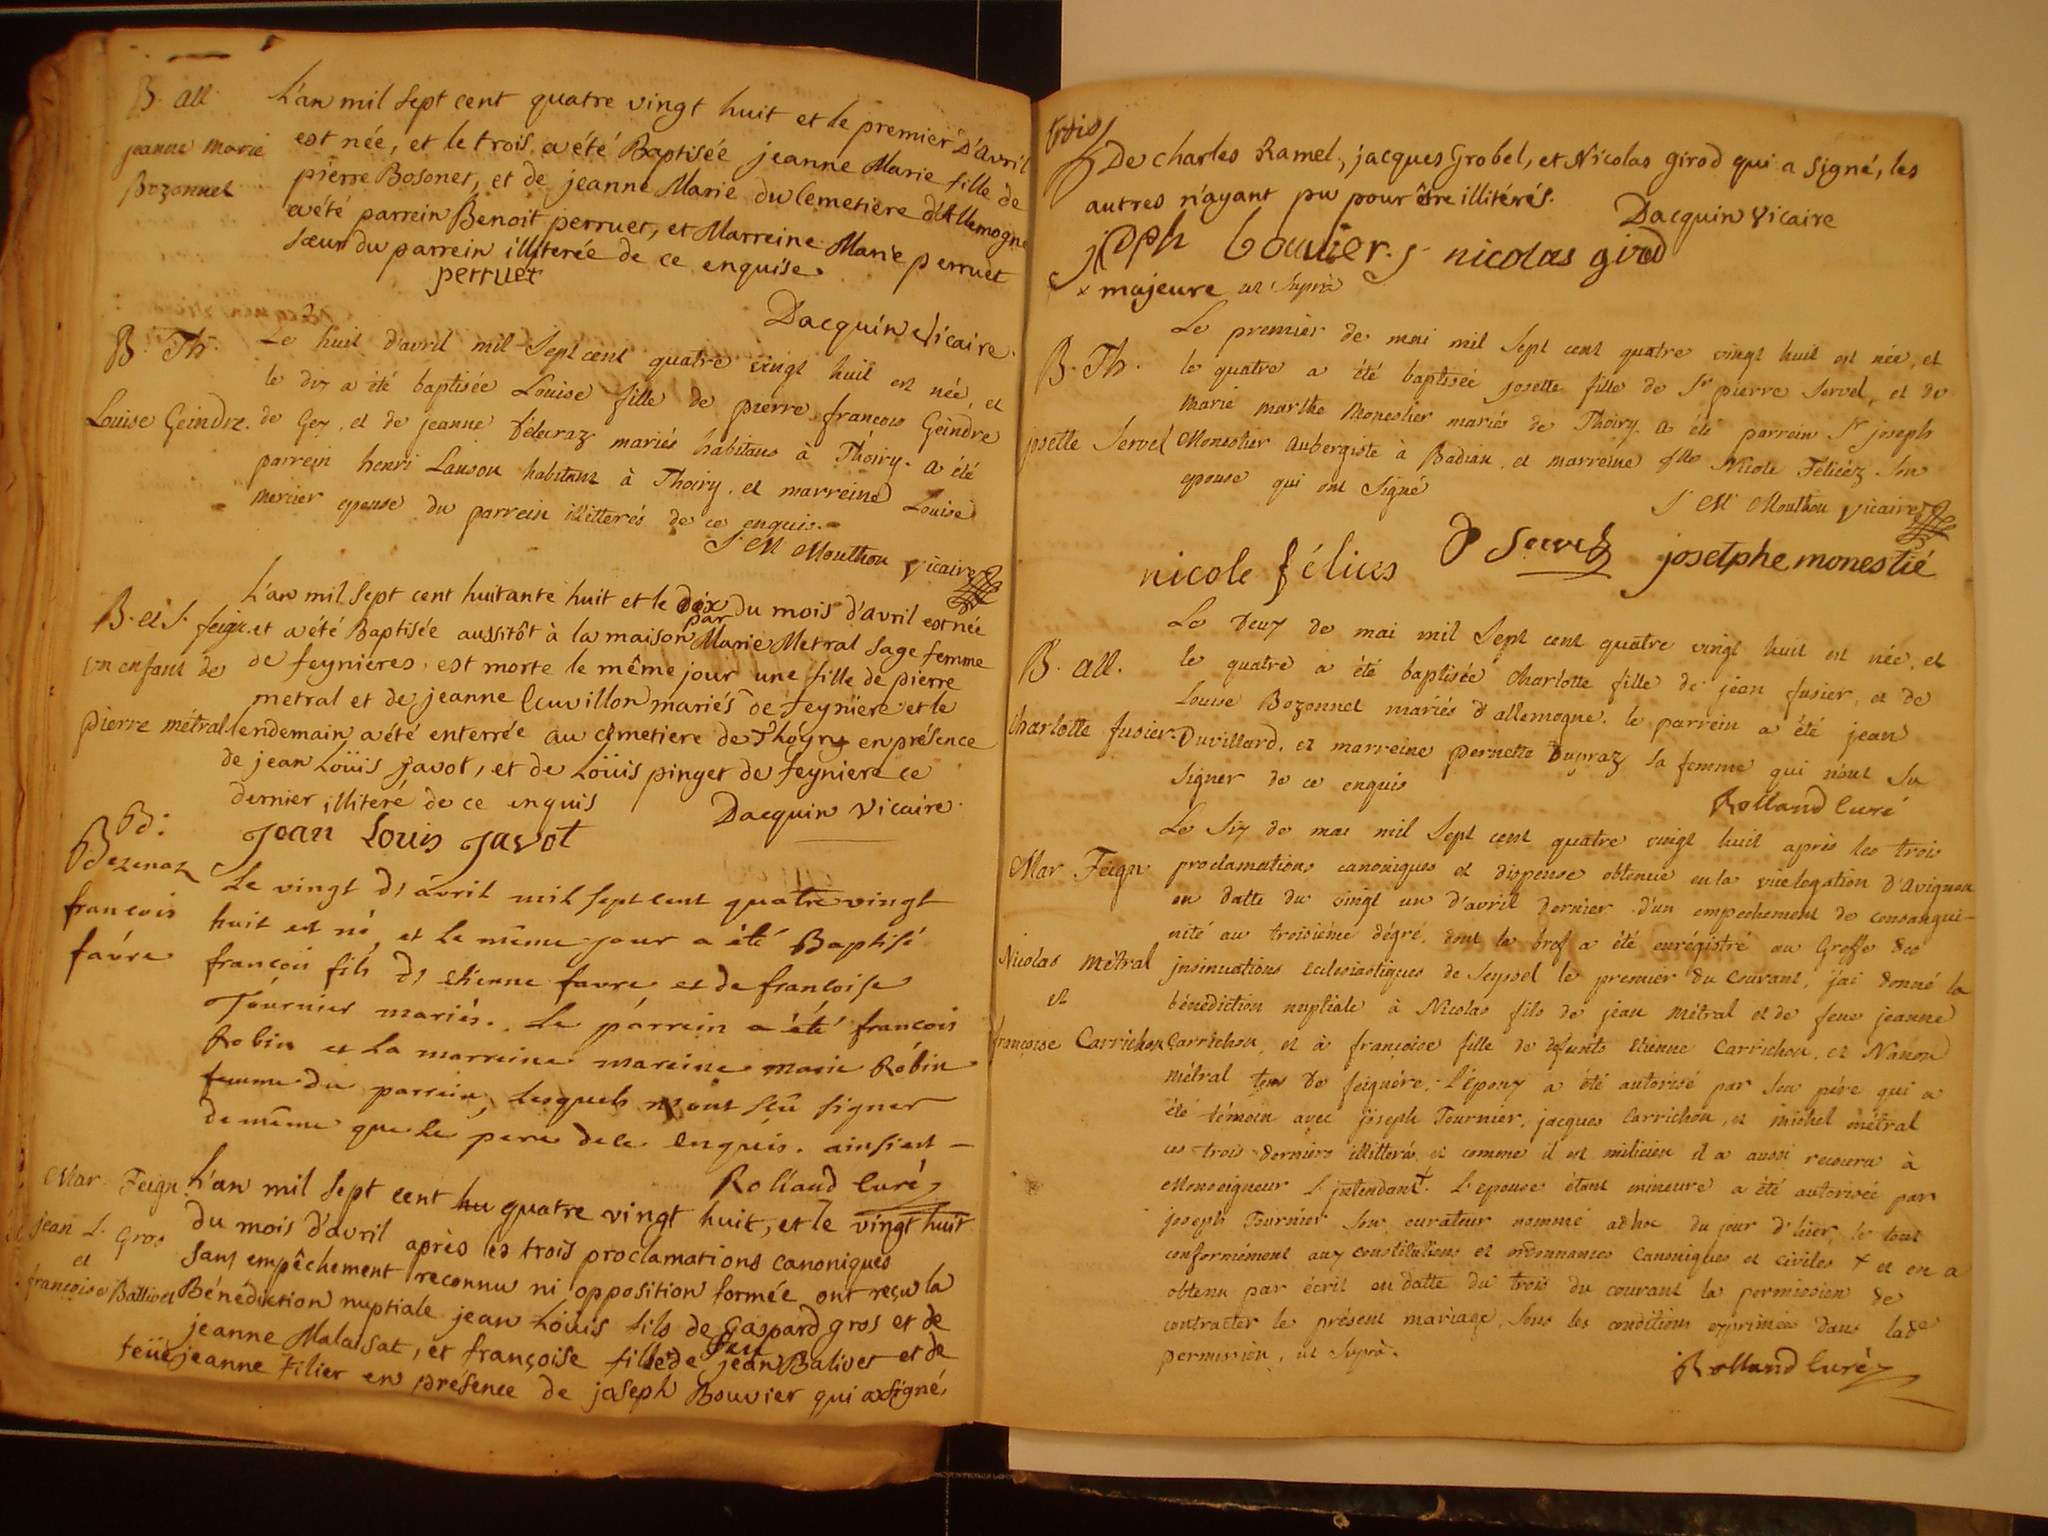 B. all.
jeanne marie
Bozonnet
L'an mil sept cent quatre vingt huit et le premier d'Avril
est née, et le trois a été Baptisée jeanne Marie fille de
pierre Bosonet, et de jeanne Marie du Cemetiere d'Allemogne
a été parrein Benoit perruet, et Marreine Marie perruet
sœur du parrein illiterée de ce enquise.
perruet
Dacquin Vicaire.
B. Th.
Louise Geindre.
Le huit d'avril mil sept cent quatre vingt huit est née, et
le dix a été baptisée Louise fille de pierre francois Geindre
de Gex, et de jeanne Délaraz mariés habitans à Thoiry. a été
parrein henri Lanson habitant à Thoiry, et marreine Louise
mercier epouse du parrein illitterés de ce enquis.
J. M Mouthon vicaire
B. et S. feign.
Un enfant de
pierre métral
L'an mil sept cent huitante huit et le dix du mois d'avril est née
et a été Baptisée aussitôt à la maison par Marie Metral sage femme
de feynieres, est morte le même jour une fille de pierre
metral et de jeanne Cuvillon mariés de feyniere et le
lendemain a été enterrée au cimetiere de Thoyry en présence
de jean Loüis javot, et de Loüis pinget de feyniere ce
dernier illiteré de ce enquis
Dacquin Vicaire.
Jean Louis Javot
Bd:
Bezenaz
francois
favre
Le vingt d'avril mil sept cent quatre vingt
huit est né, et le même jour a été Baptisé
françois fils d'etienne favre et de francoise
Tournier mariés. Le parrein a été françois
Robin et la marreine mareine marie Robin
femme du parrein, lesquels n'ont sçû signer
de même que le pere de ce enquis. ainsi est
Rolland Curé
Mar. Feign.
jean L. Gros
et
françoise Ballivet
L'an mil sept cent hu quatre vingt huit, et le vingt huit
du mois d'avril après les trois proclamations canoniques
sans empêchement reconnu ni opposition formée ont reçu la
Bénédiction nuptiale jean Loüis fils de Gaspard gros et de
jeanne Malaisat, et françoise fille de feu jean Balivet et de
feüe jeanne Filier en presence de joseph Bouvier qui a signé,
trois
De charles Ramel, jacques Grobel, et Nicolas girod qui a signé, les
autres n'ayant pu pour être illitérés.
Dacquin Vicaire
jsph bouvier. nicolas girod
x majeure ut Suprà
B. Th.
josette Servel
Le premier de mai mil sept cent quatre vingt huit est née, et
le quatre a été baptisée josette fille de Sr pierre Servel, et de
Marie marthe Monestier mariés de Thoiry. a été parrein Sr joseph
Monestier aubergiste à Badian, et marreine dlle Nicole Felicez son
epouse qui ont signé
J M Mouthon vicaire
nicole félices P Servel joselphe monestié
B. all.
Charlotte fusier.
Le deux de mai mil sept cent quatre vingt huit est née, et
le quatre a été baptisée Charlotte fille de jean fusier, et de
Louise Bozonnet mariés d'allemogne. le parrein a été jean
Duvillard, et marreine pernette Dupraz sa femme qui n'ont su
signer de ce enquis
Rolland Curé
Mar. Feign.
Nicolas métral
et
françoise Carrichon
Le six de mai mil sept cent quatre vingt huit après les trois
proclamations canoniques et dispense obtenue en la vicelegation d'Avignon
en datte du vingt un d'avril dernier d'un empechement de consangui-
nité au troisième dégré, dont le bref a été enrégistré au Greffe des
jnsinuations ecclesiastiques de Seyssel le premier du courant, j'ai donné la
bénédiction nuptiale à Nicolas fils de jean métral et de feue jeanne
Carrichon, et à françoise fille de defunts etienne Carrichon, et Nanon
métral tous de feignère. L'époux a été autorisé par son père qui a
été témoin avec joseph Tournier, jacques Carrichon, et michel métral
ces trois derniers illitterés et comme il est milicien il a aussi recouru à
Monseigneur L'jntendant. L'epouse étant mineure a été autorisée par
joseph Tournier son curateur nommé adhoc du jour d'hier, le tout
conformément aux constitutions et ordonnances canoniques et civiles x et en a
obtenu par écrit en datte du trois du courant la permission de
contracter le présent mariage, sous les conditions exprimées dans lade
permission, ut suprà.
Rolland Curé